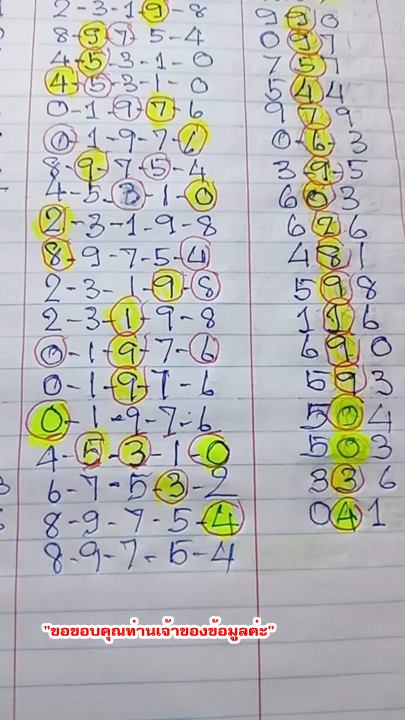 2-3-1-9-8 990
8-9-7-5-4 097
4-5-3-1-0 757
4-5-3-1-0 544
0-1-9-7-6 979
0-1-9-7-6 0-6-3
8-9-7-5-4 3-9-5
4-5-3-1-0 603
2-3-1-9-8 626
8-9-7-5-4 481
2-3-1-9-8 598
2-3-1-9-8 136
0-1-9-7-6 690
0-1-9-7-6 593
0-1-9-7-6 504
4-5-3-1-0 503
6-7-5-3-2 336
8-9-7-5-4 041
8-9-7-5-4
"ขอขอบคุณท่านเจ้าของข้อมูลค่ะ"